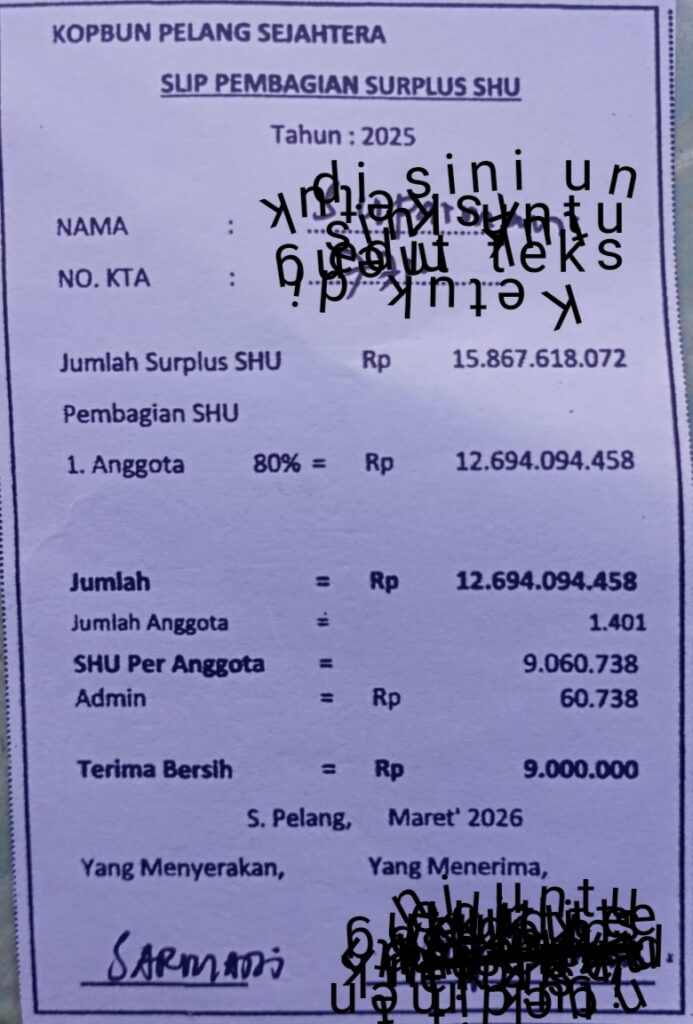 KOPBUN PELANG SEJAHTERA
SLIP PEMBAGIAN SURPLUS SHU
Tahun : 2025
NAMA :
NO. KTA :
Jumlah Surplus SHU Rp 15.867.618.072
Pembagian SHU
1. Anggota 80% = Rp 12.694.094.458
Jumlah = Rp 12.694.094.458
Jumlah Anggota = 1.401
SHU Per Anggota = 9.060.738
Admin = Rp 60.738
Terima Bersih = Rp 9.000.000
S. Pelang, Maret' 2026
Yang Menyerakan, Yang Menerima,
SARMADI